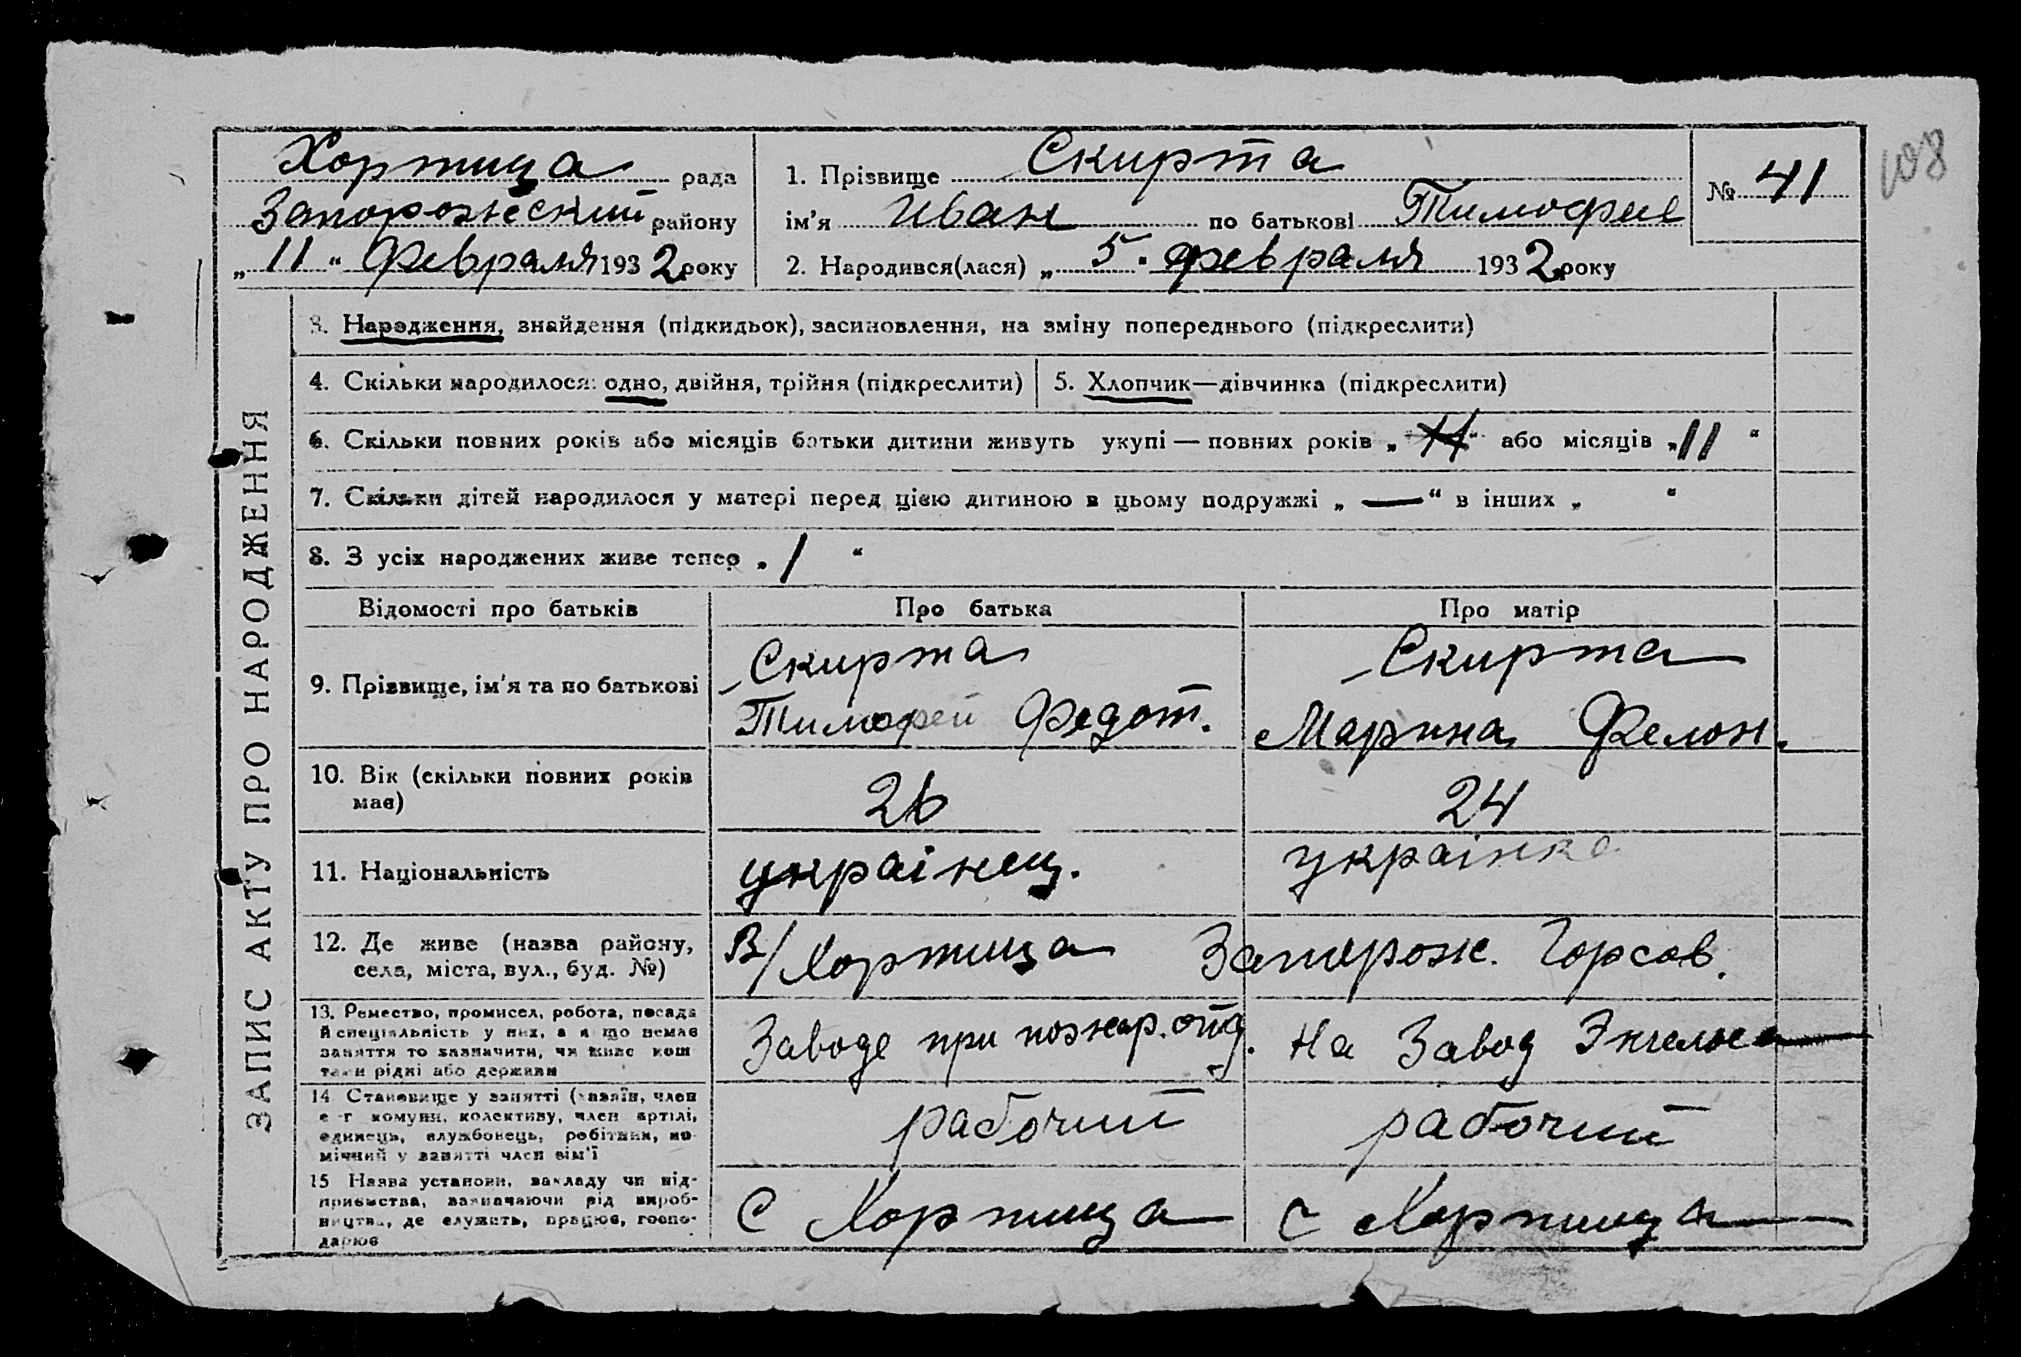 108
Хортица рада
Запорожский району
„ 11 “ Февраля 1932 року
1. Прізвище Скирта
ім'я Иван по батькові Тимофее
2. Народився(лася) „ 5 “ февраля 1932 року
№ 41
ЗАПИС АКТУ ПРО НАРОДЖЕННЯ
3. Народження, знайдення (підкидьок), засиновлення, на зміну попереднього (підкреслити)
4. Скільки народилося: одно, двійня, трійня (підкреслити)
5. Хлопчик—дівчинка (підкреслити)
6. Скільки повних років або місяців батьки дитини живуть укупі — повних років „ “ або місяців „ 11 “
7. Скільки дітей народилося у матері перед цією дитиною в цьому подружжі „ — “ в інших „ “
8. З усіх народжених живе тепер „ 1 “
Відомості про батьків
Про батька
Про матір
9. Прізвище, ім'я та по батькові
Скирта
Тимофей Федот.
Скирта
Марина Фелон.
10. Вік (скільки повних років
має)
26
24
11. Національність
українец.
українка
12. Де живе (назва району,
села, міста, вул., буд. №)
В/Хортица Запорож. Горсов.
13. Ремество, промисел, робота, посада
й спеціяльність у них, а якщо немає
заняття то зазначити, чи живе кош
тами рідні або держави
Заводе при пожар. отд.
На Завод Энгельса
14 Становище у занятті (хазяїн, член
с-г комуни, колективу, член артілі,
одинець, службовець, робітник, по-
мічний у занятті член сім'ї
рабочий
рабочий
15 Назва установи, закладу чи під-
приємства, зазначаючи рід вироб-
ництва, де служить, працює, госпо-
дарює
С Хортица
С Хортица